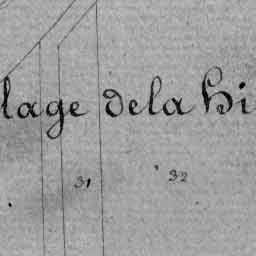 lage de la Hi
31 32